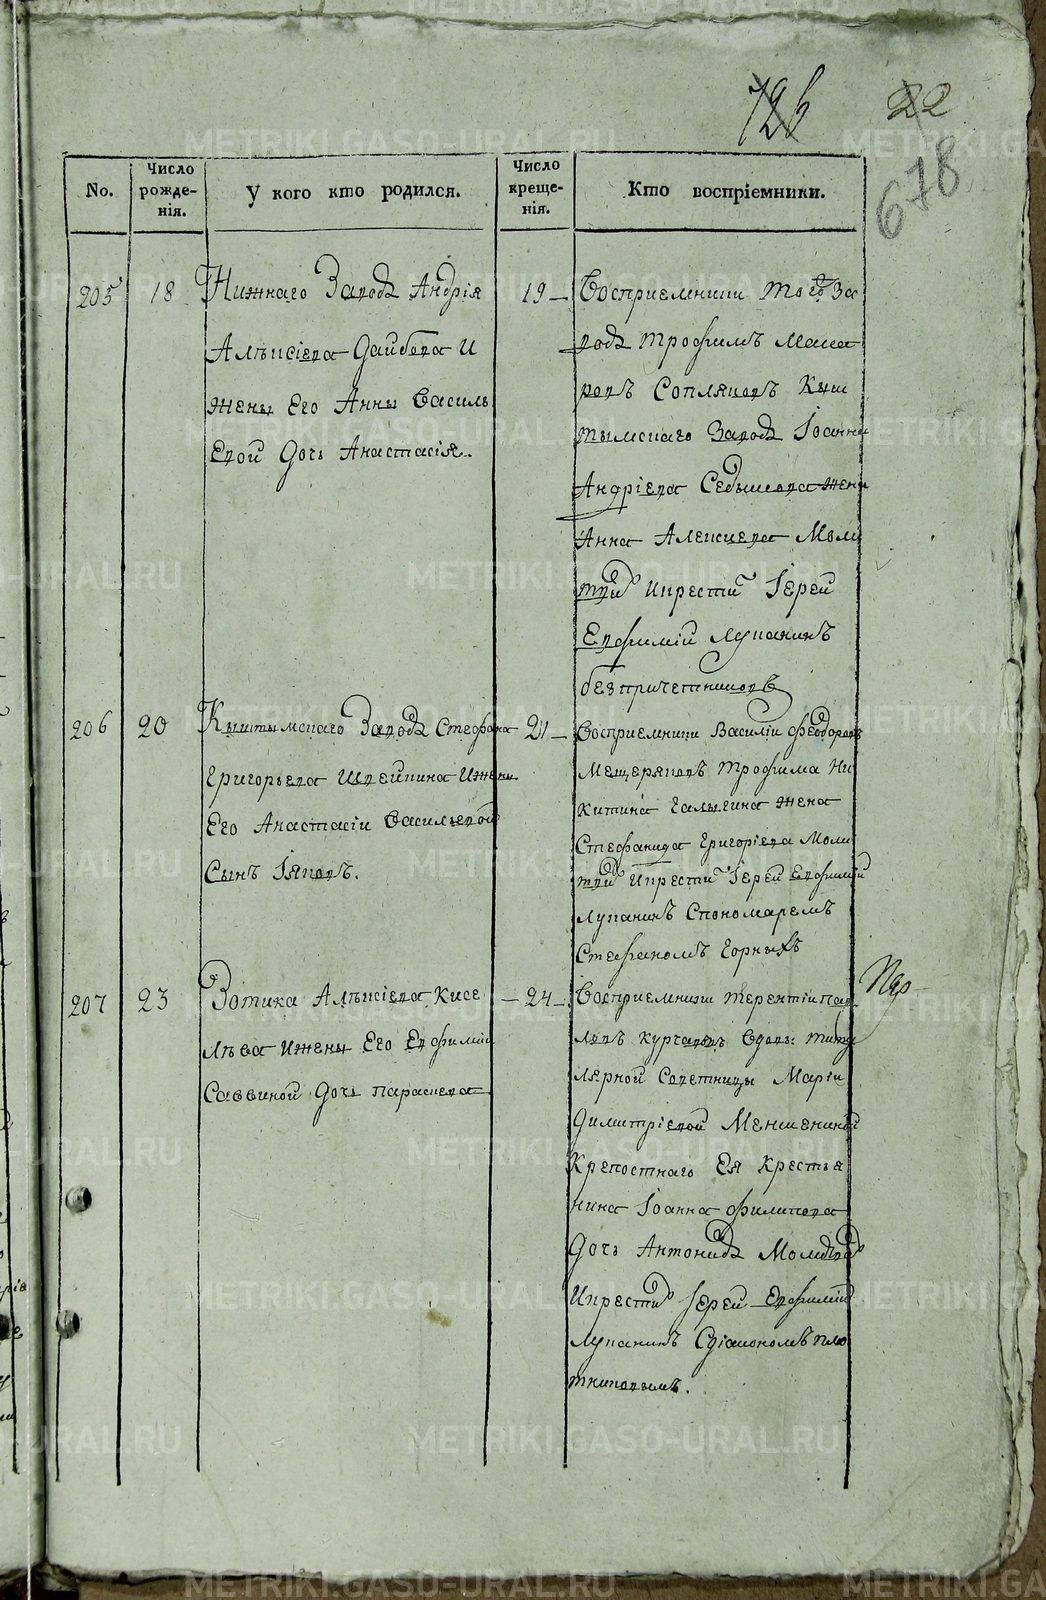 126 22
678
No.
Число рожде-нія.
У кого кто родился.
Число креще-нія.
Кто воспріемники.
205
18
Нижнаго Заводѣ Андрія
Алѣксіева Дайбова И
жены Его Анны Василь
Евой Дочь Анастасія.
19
Восприемники того За
водѣ Трофимъ Мака
ровъ Сопляковъ Кыш
тымскаго Заводѣ Іоанна
Андріева Седышева жена
Анна Алексиева Моли
Икрести Іерей
Евфимій Лупанинъ
безпричетниковъ
206
20
Кыштымскаго Заводѣ Стефана
Григорьева Шлейкина Ижены
Его Анастасіи Васильевой
Сынъ Іяковъ.
21
Восприемники Василіи Феодоровъ
Мещеряковъ Трофима Ни
китина Галыгина жена
Стефанида Григоріева Моли
Икрести Іерей Евфимій
Лупанинъ Спономаремъ
Стефаномъ Горныхъ
207
23
Зотика Алѣксіева Кисе
лѣва Ижены Его Евфиміи
Саввиной Дочь параскева
24
Восприемники Терентіи пав
ловъ Курчавовъ Вдовы Титу
лярной Советницы Маріи
Димитріевой Меншениной
Крепостнаго Ея Крестья
нина Іоанна Филипова
Дочь Антонидѣ
Икрести Іерей Евфимій
Лупанинъ Сдіакономъ пло
тниковымъ.
METRIKI.GASO-URAL.RU